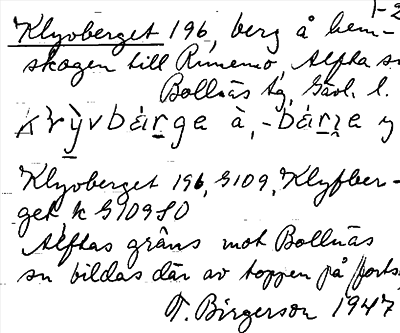 1-2
Klyvberget 196, berg å hem-
skogen till Runemo, Alfta sn
Bollnäs tg, Gävl. l.
krỳvbárge à, -bárge y
Klyvberget 196, G109, Klyfber-
get k G109 SO
Alftas gräns mot Bollnäs
sn bildas där av toppen på (forts.
T. Birgerson 1947